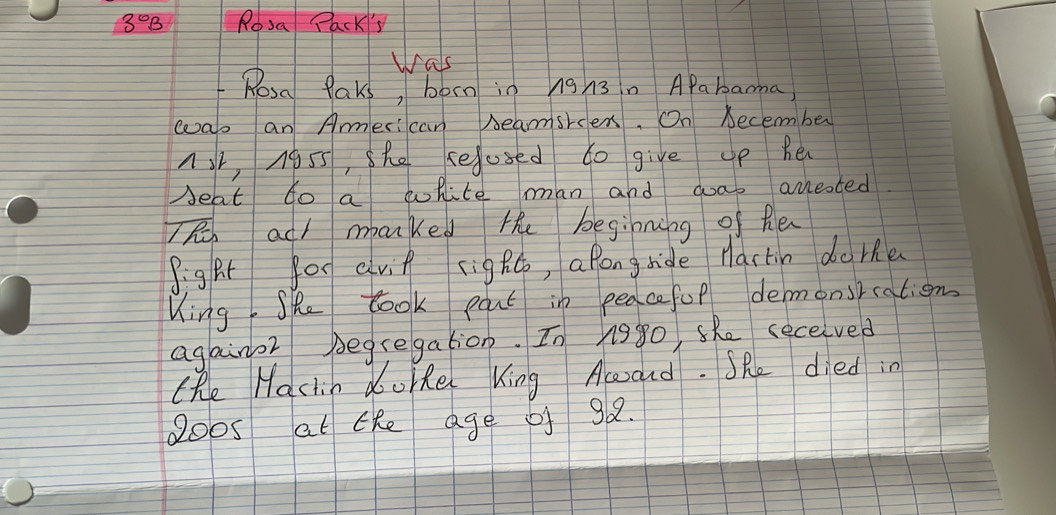 3°B Rosa Pack's
Was
- Rosa Paks, born in 1913 in Alabama,
was an American seamstress. On December
1st, 1955, she refused to give up her
seat to a white man and was arrested.
This act marked the beginning of her
fight for civil rights, alongside Martin Luther
King. She took part in peaceful demonstrations
against segregation. In 1980, she received
the Martin Luther King Award. She died in
2005 at the age of 92.